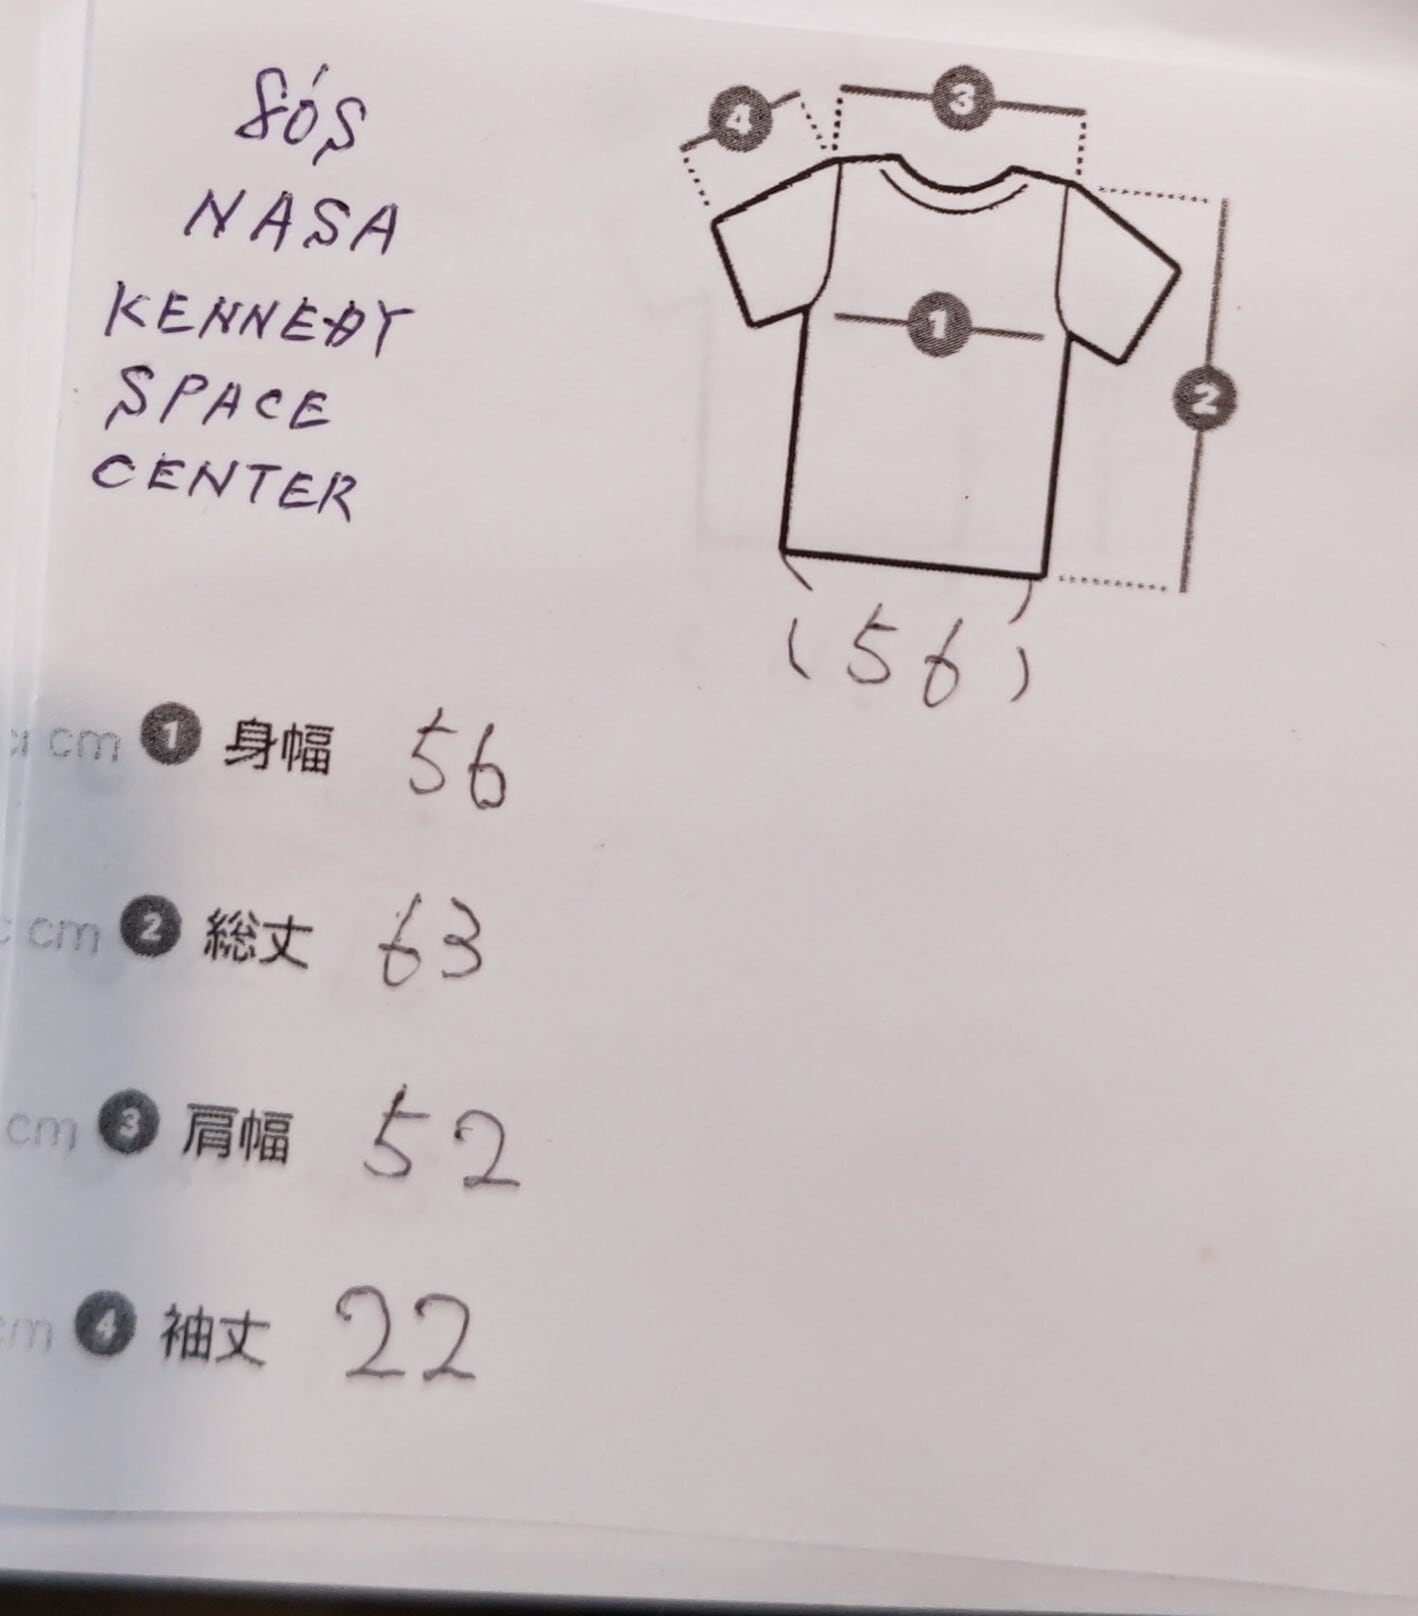 80's
NASA
KENNEDY
SPACE
CENTER
4
3
1
2
(56)
cm 1 身幅 56
cm 2 総丈 63
cm 3 肩幅 52
cm 4 袖丈 22